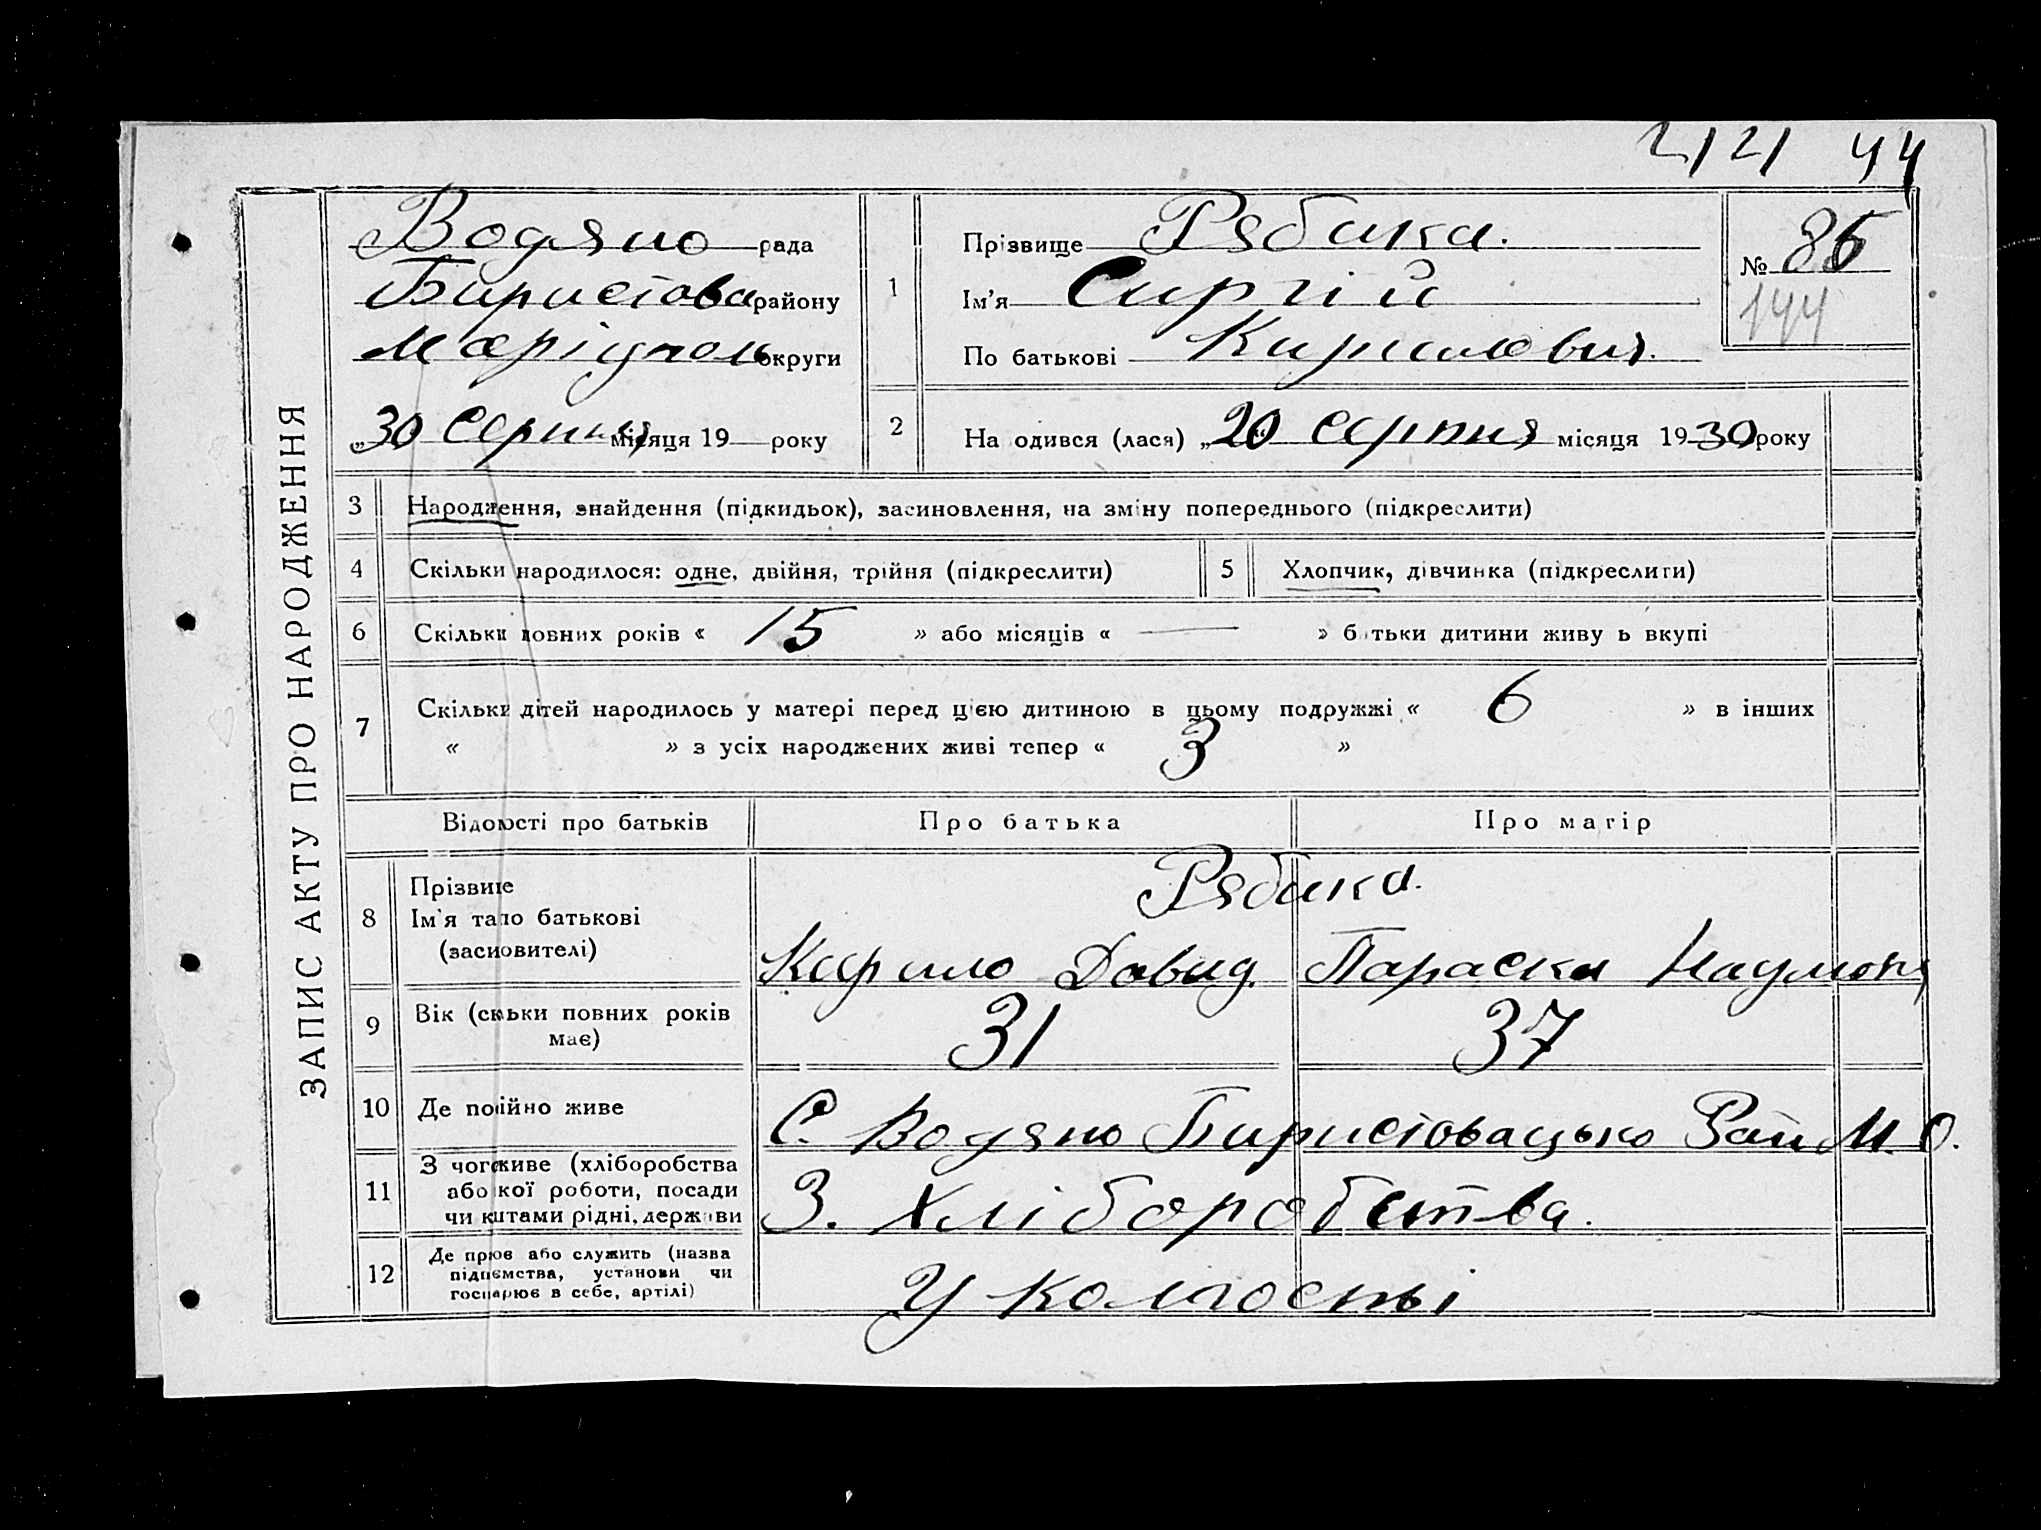 2121 44
Водяно рада
Биристова району
Маріуполь округи
„30 Серпня місяця 19 року
1
Прізвище Рябика.
Ім'я Сиргій
По батькові Кирилович.
№ 86
144
2 На одився (лася) „20“ серпня місяця 1930 року
ЗАПИС АКТУ ПРО НАРОДЖЕННЯ
3 Народження, знайдення (підкидьок), засиновлення, на зміну попереднього (підкреслити)
4 Скільки народилося: одне, двійня, трійня (підкреслити) 5 Хлопчик, дівчинка (підкреслити)
6 Скільки повних років « 15 » або місяців « — » б тьки дитини живу ь вкупі
7 Скільки дітей народилось у матері перед цією дитиною в цьому подружжі « 6 » в інших
« » з усіх народжених живі тепер « 3 »
Відомості про батьків Про батька Про матір
8 Прізвище
Ім'я та по батькові
(засновителі)
Рябика.
Кирило Давид. Параска Наумони
9 Вік (скьки повних років
має)
31 37
10 Де пойійно живе С. Водяно Биристовацько Рай М. О.
11 З чого живе (хліборобства
або кої роботи, посади
чи кштами рідні, держави
З. Хліборобства.
12 Де прює або служить (назва
підпємства, установи чи
госпарює в себе, артілі)
У колгоспі